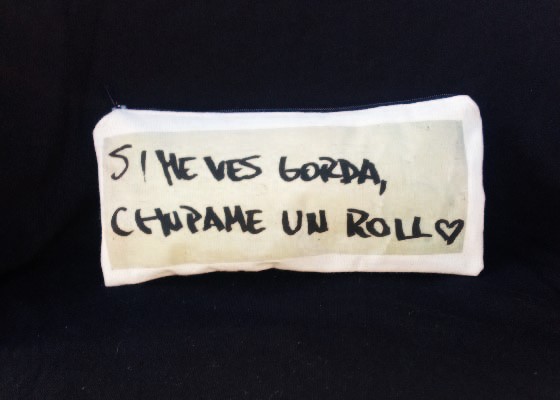 SI ME VES GORDA,
CHUPAME UN ROLL♡